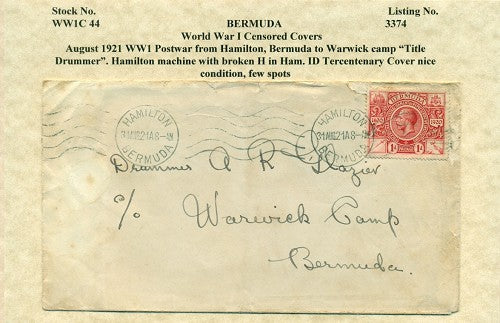 Stock No.
WW1C 44
BERMUDA
Listing No.
3374
World War I Censored Covers
August 1921 WW1 Postwar from Hamilton, Bermuda to Warwick camp “Title
Drummer”. Hamilton machine with broken H in Ham. ID Tercentenary Cover nice
condition, few spots
HAMILTON
BERMUDA
HAMILTON
BERMUDA
BERMUDA
1920
1d
1d
Drummer A R Glazier
c/o Warwick Camp
Bermuda.